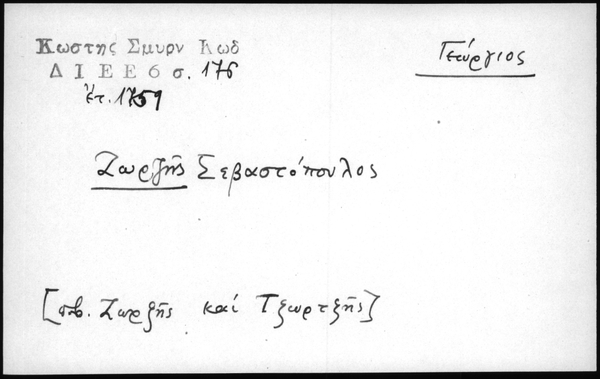 Κωστης Σμυρν Κωδ
Δ Ι Ε Ε 6 σ. 176
ἔτ. 1759
Γεώργιος
Ζωρζῆς Σεβαστόπουλος
[πβ. Ζωρζῆς καί Τζωρτζῆς]